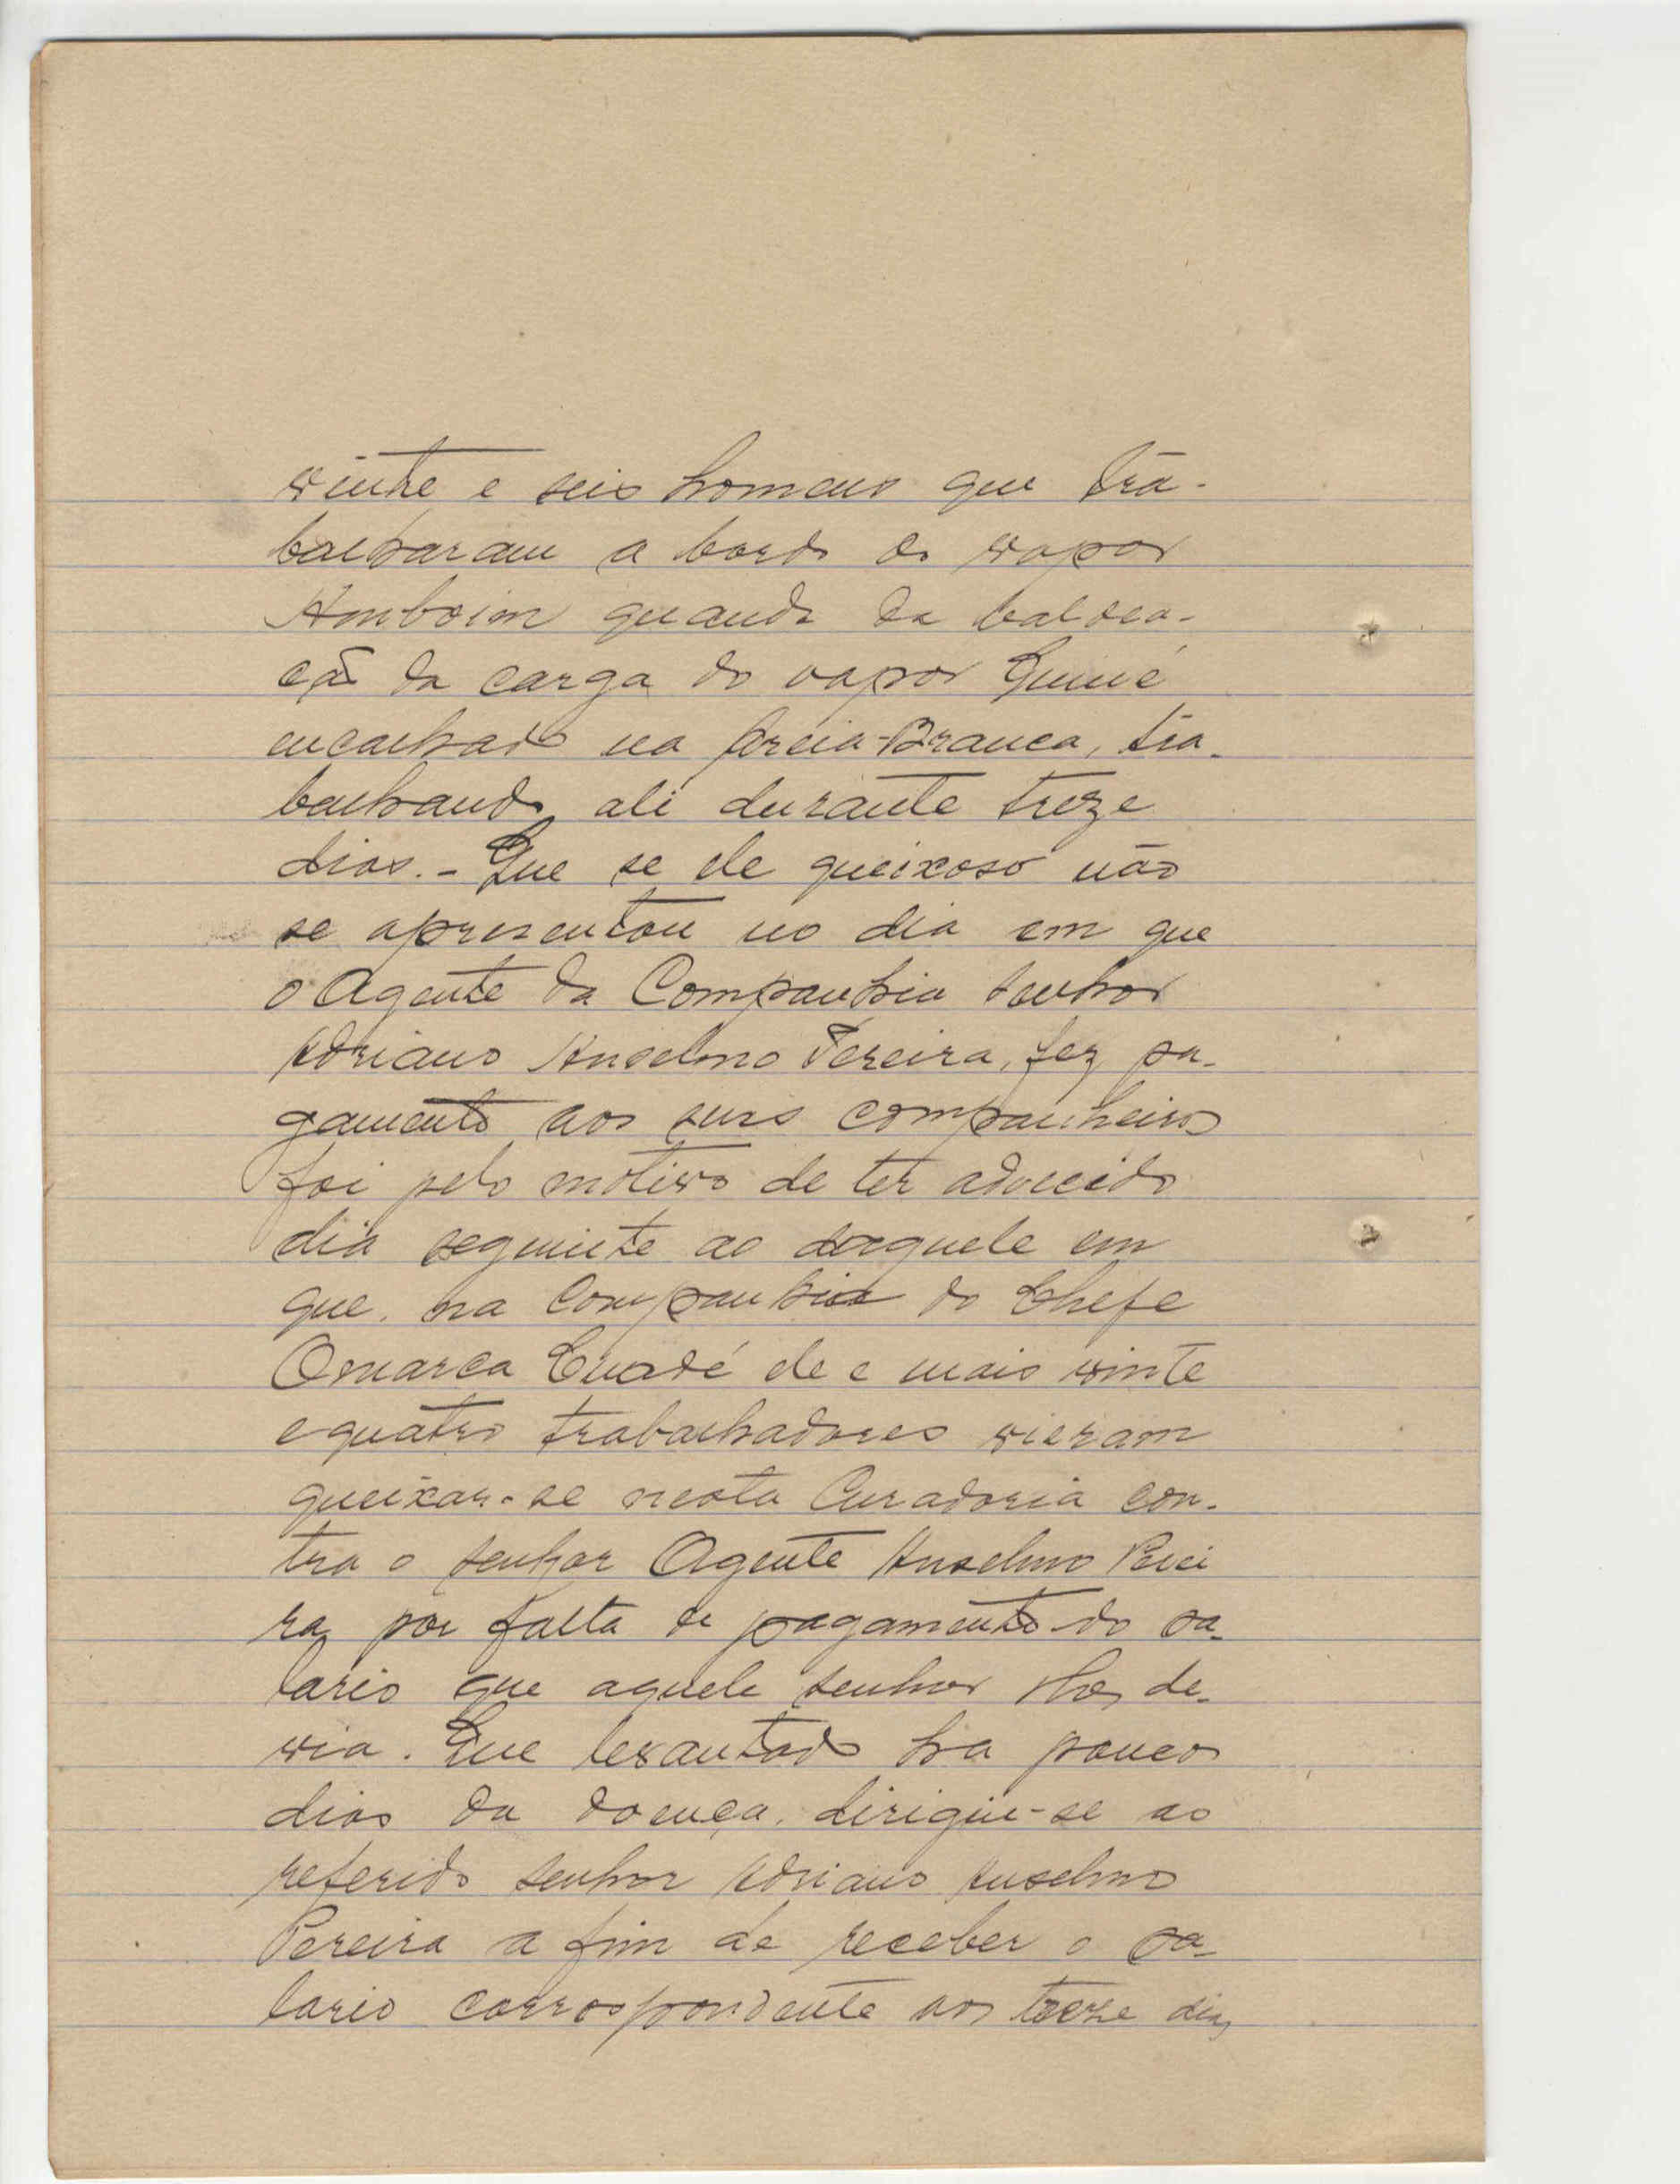 vinte e seis homens que tra-
balharam a bordo do vapor
Amboim quando da baldea-
ção da carga do vapor Guiné
encalhado na Areia-Branca, tra-
balhando ali durante treze
dias. - Que se ele queixoso não
se apresentou no dia em que
o Agente da Companhia senhor
Adriano Anselmo Pereira, fez pa-
gamento aos seus companheiros
foi pelo motivo de ter adoecido
dia seguinte ao daquele em
que, na companhia do Chefe
Omarca ele e mais vinte
e quatro trabalhadores vieram
queixar-se nesta Curadoria con-
tra o senhor Agente Anselmo Perei
ra por falta de pagamento do sa-
lario que aquele senhor lhes de-
via. Que levantado ha poucos
dias da doença, dirigiu-se ao
referido senhor Adriano Anselmo
Pereira a fim de receber o sa-
lario correspondente aos treze dias